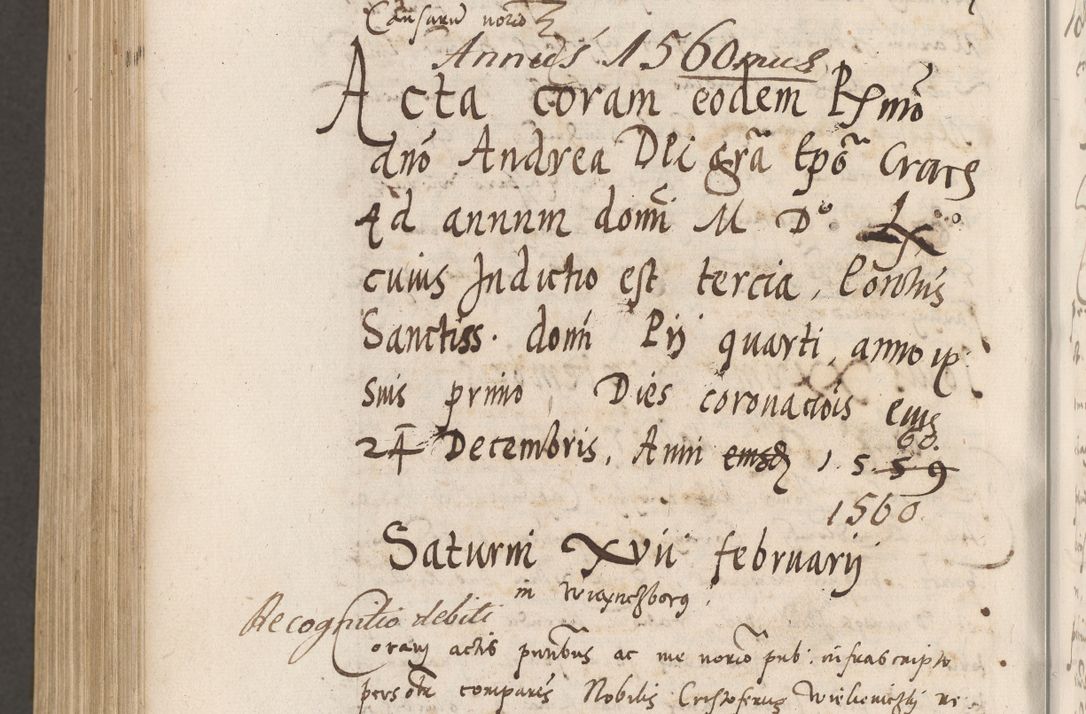 Causarum norio
Annus 1560mus
Acta coram eodem Rsmo
dno Andrea Dei gra Epo Crac
Ad annum domi M Do Lxo
cuius Indictio est tercia, Pontctus
Sanctiss. domi Pij quarti, anno ip
sius primo, Dies coronacois eius
24 Decembris, Anni eiusd 1 5 5 9
60.
1560.
Saturni Xvii februarij
in
Recognitio debiti
Coram actis pntibus ac me norio pub. infrascripto
psonr comparens Nobilis Cristoferus Wielieniczki re